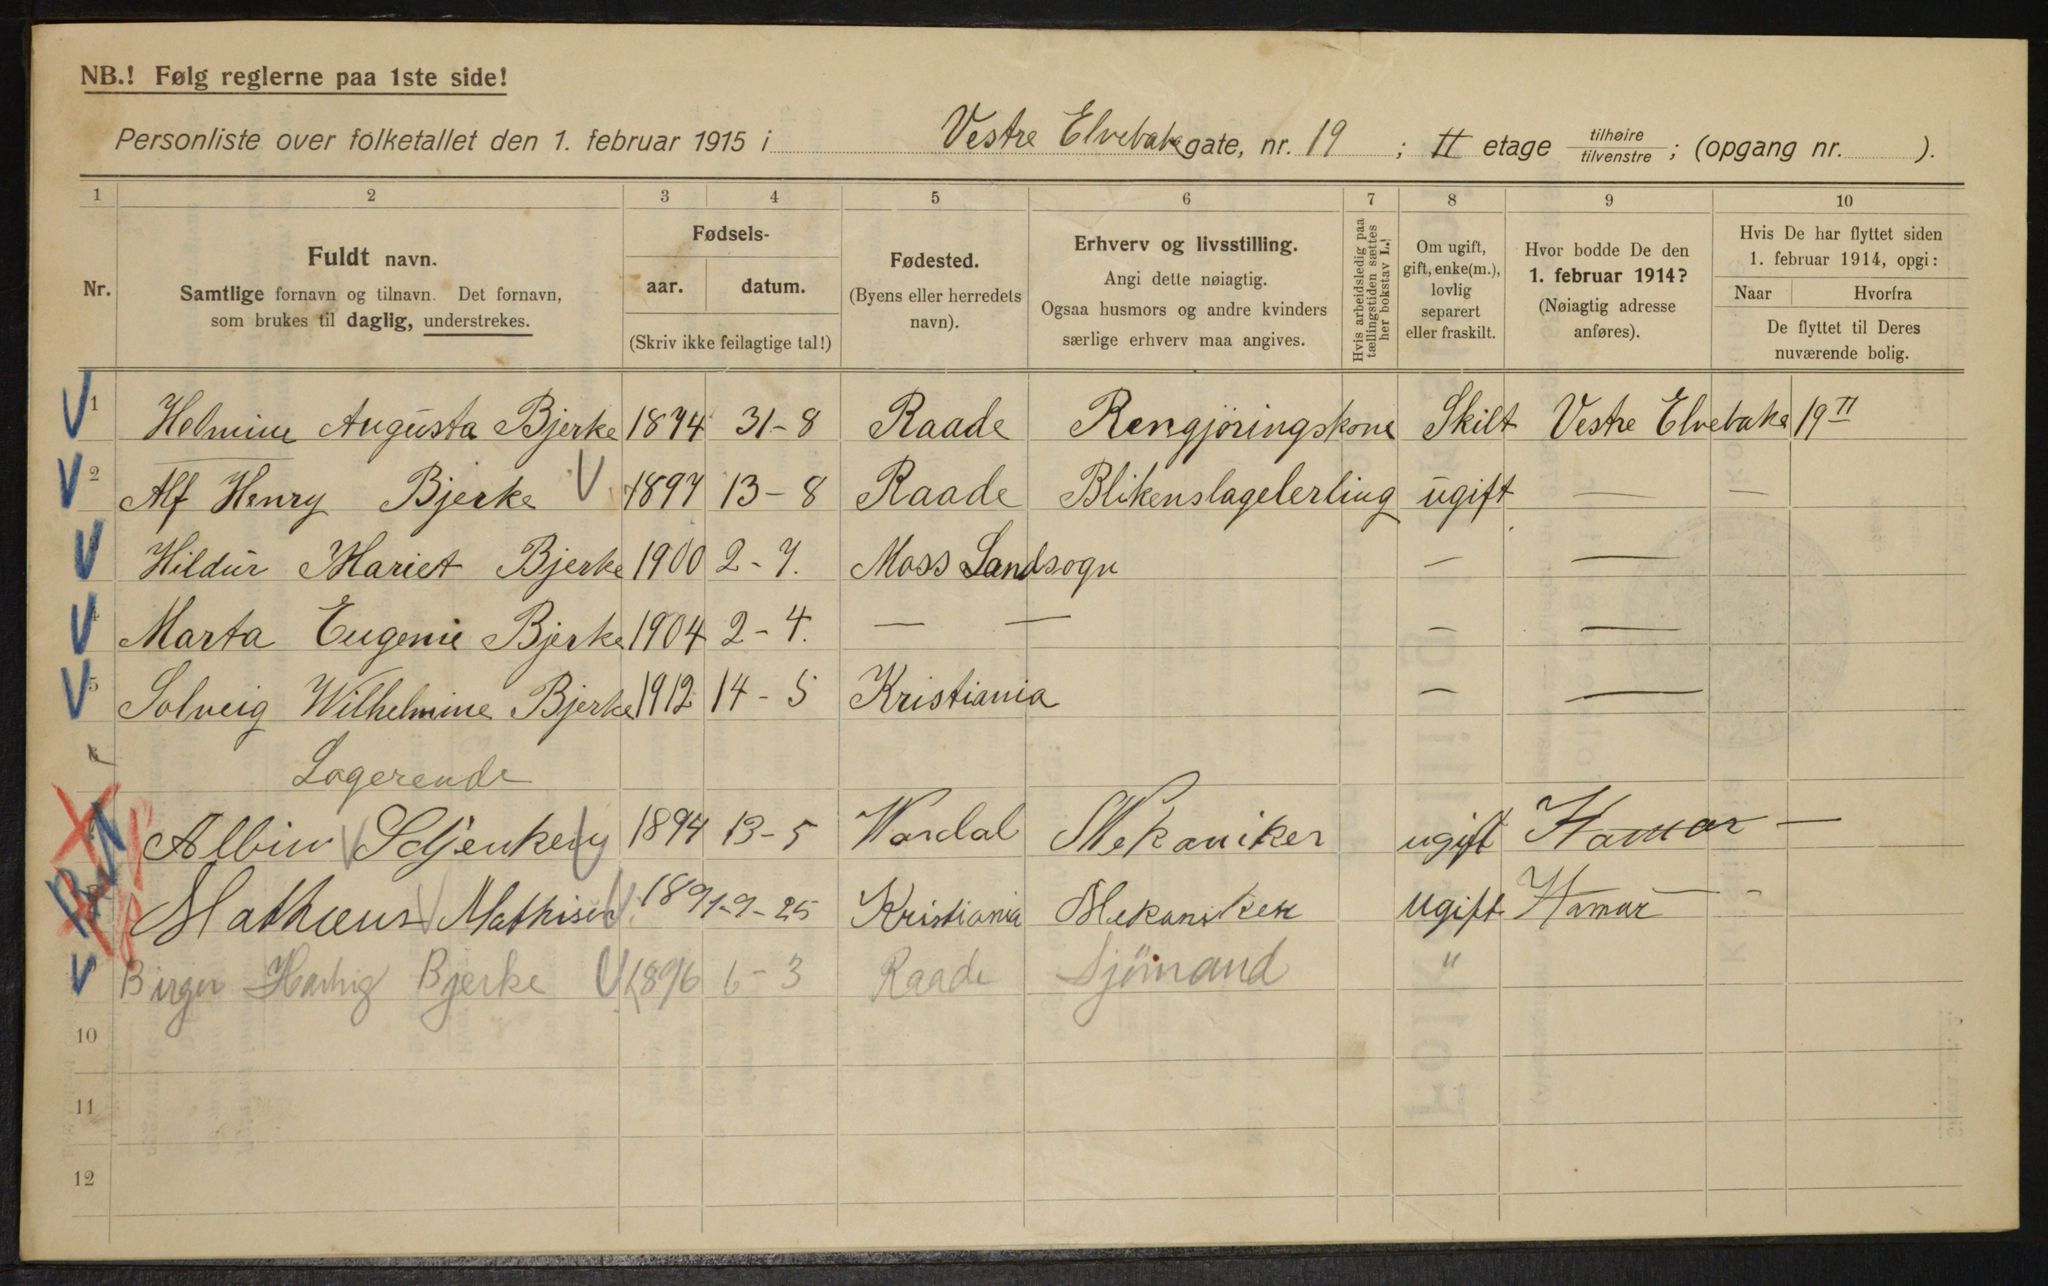 NB.! Følg reglerne paa 1ste side!
Personliste over folketallet den 1. februar 1915 i Vestre Elvebakke gate, nr. 19 ; II etage tilhøire / tilvenstre ; (opgang nr. ).
1 2 3 4 5 6 7 8 9 10
Nr.
Fuldt navn.
Samtlige fornavn og tilnavn. Det fornavn,
som brukes til daglig, understrekes.
Fødsels-
aar. datum.
(Skriv ikke feilagtige tal!)
Fødested.
(Byens eller herredets
navn).
Erhverv og livsstilling.
Angi dette nøiagtig.
Ogsaa husmors og andre kvinders
særlige erhverv maa angives.
Hvis arbeidsledig paa
tællingstiden sættes
her bokstav L.!
Om ugift,
gift, enke(m.),
lovlig
separert
eller fraskilt.
Hvor bodde De den
1. februar 1914?
(Nøiagtig adresse
anføres).
Hvis De har flyttet siden
1. februar 1914, opgi:
Naar Hvorfra
De flyttet til Deres
nuværende bolig.
1 Helmine Augusta Bjerke 1874 31-8 Raade Rengjøringskone Skilt Vestre Elvebake 19 II
2 Alf Henry Bjerke 1897 13-8 Raade Blikenslagelerling ugift — —
Hildur Mariet Bjerke 1900 2-7. Moss Landsogn — —
4 Marta Eugenie Bjerke 1904 2-4. — — — —
5 Solveig Wilhelmine Bjerke 1912 14-5 Kristiania — —
6 Logerende
Albin 1894 13-5 Vardal Mekaniker ugift Hamar —
Mathæus Mathisen 1891 9-25 Kristiania Mekaniker Ugift Hamar — -
Birger Hartvig Bjerke 1896 6-3 Raade Sjömand "
10
11
12